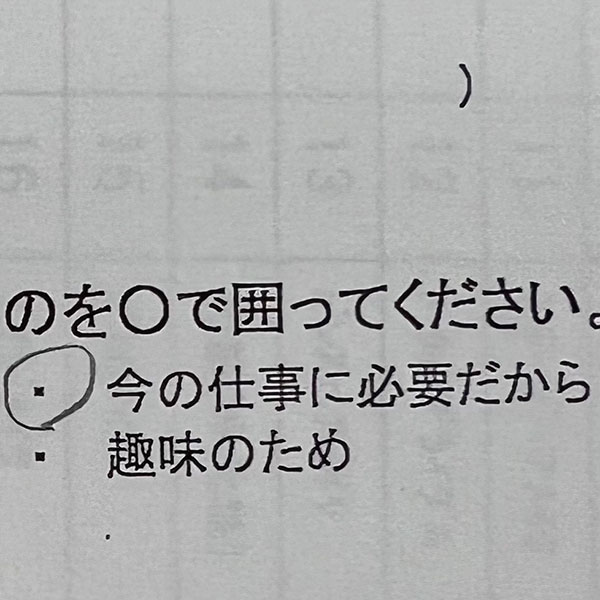 )
のを〇で囲ってください。
・ 今の仕事に必要だから
・ 趣味のため